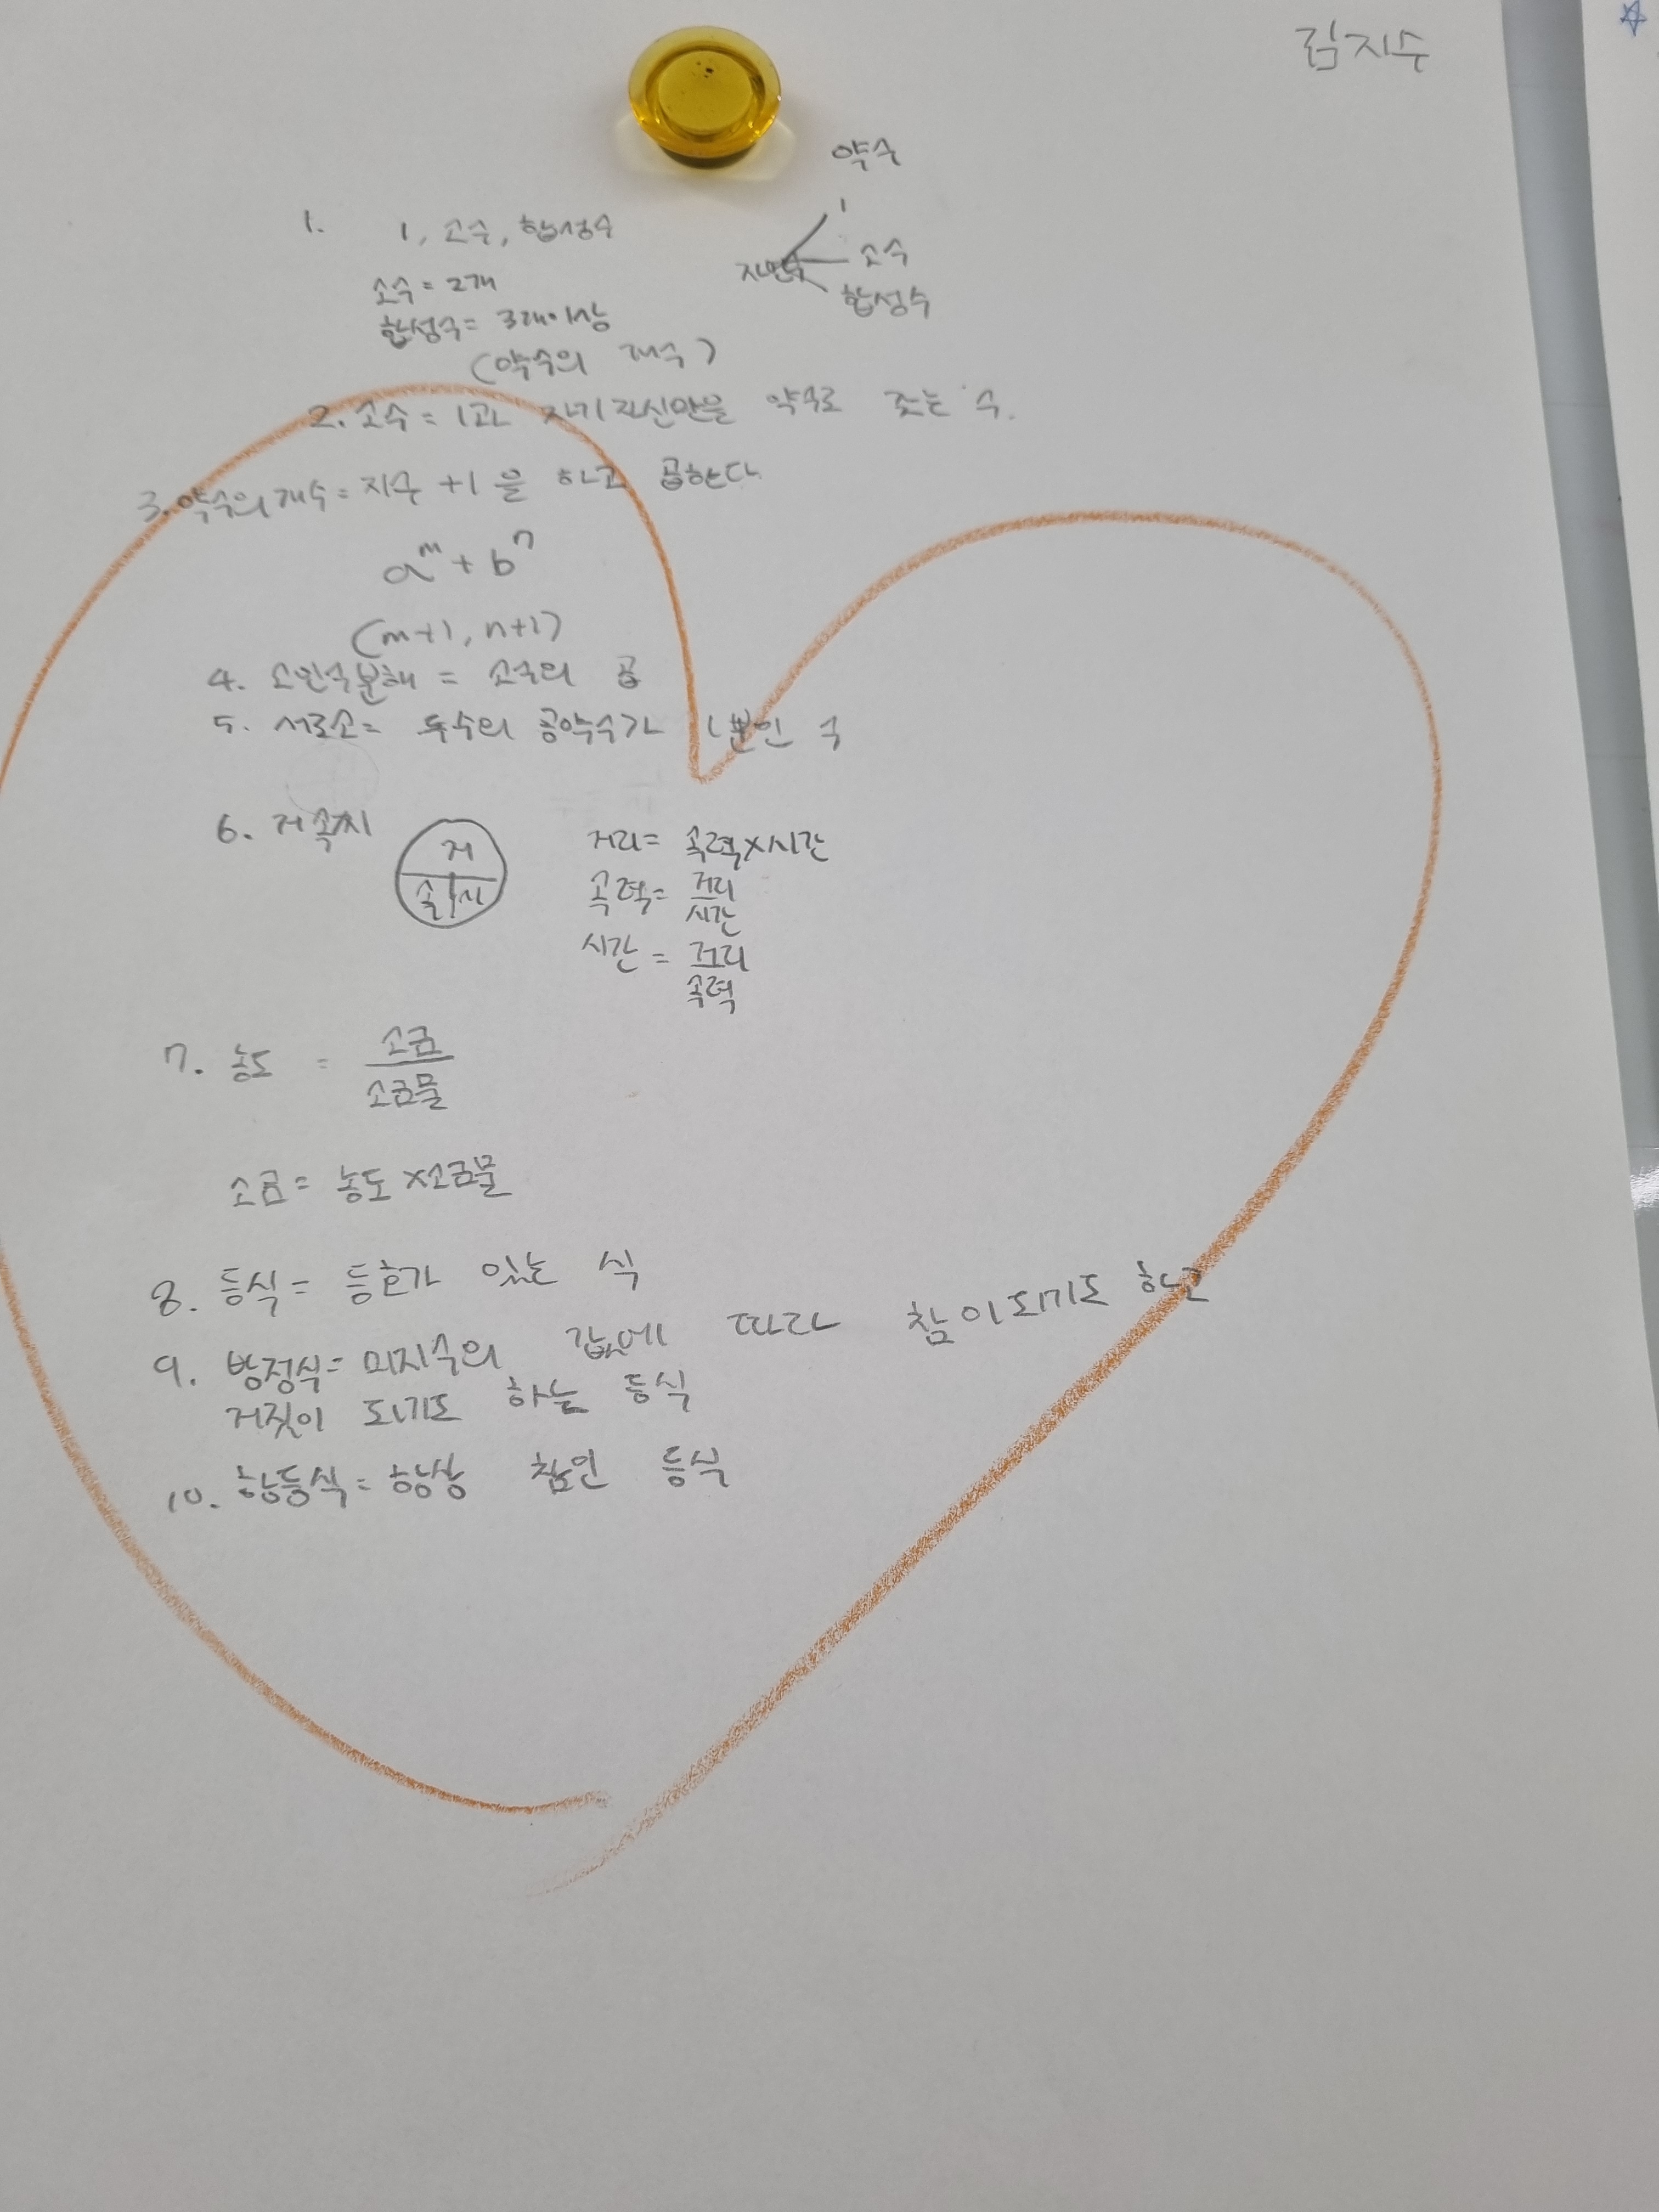 김지수
약수
1. 1, 소수, 합성수
자연수
1
소수
합성수
소수 = 2개
합성수 = 3개이상
(약수의 개수)
2. 소수 = 1과 자기자신만을 약수로 갖는 수.
3. 약수의 개수 = 지수 +1 을 하고 곱한다.
a^m + b^n
(m+1, n+1)
4. 소인수분해 = 소수의 곱
5. 서로소 = 두수의 공약수가 1뿐인 수
6. 거속시
거
속 시
거리 = 속력×시간
속력 = 거리
시간
시간 = 거리
속력
7. 농도 = 소금
소금물
소금 = 농도 ×소금물
8. 등식 = 등호가 있는 식
9. 방정식 = 미지수의 값에 따라 참이되기도 하고
거짓이 되기도 하는 등식
10. 항등식 = 항상 참인 등식